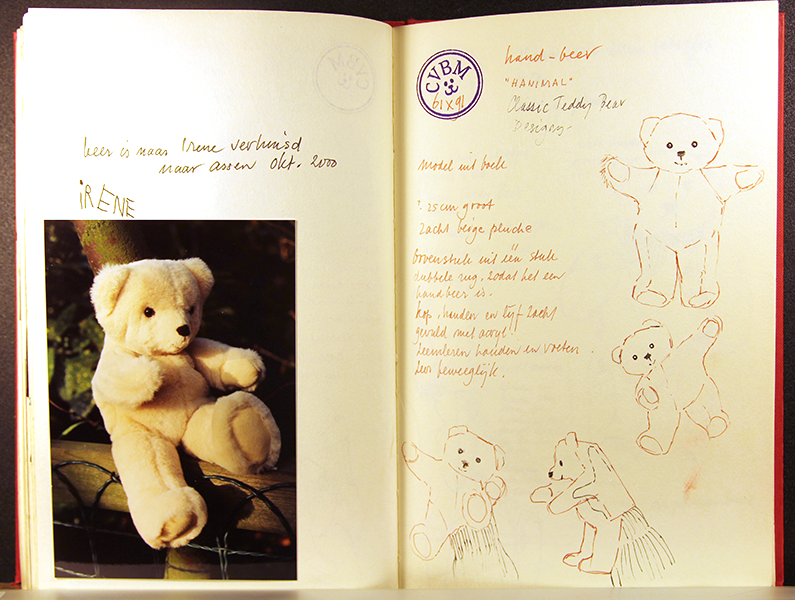 beer is naar Irene verhuisd
naar assen okt. 2000
iRENE
CVBM
61x91
hand-beer
"HANIMAL"
Classic Teddy Bear
Designs.
model uit boek
25cm groot
zacht beige pluche
bovenstuk uit één stuk
dubbele rug, zodat het een
handbeer is.
kop, handen en lijf zacht
gevuld met acryl.
zeemleren handen en voeten.
beweeglijk.